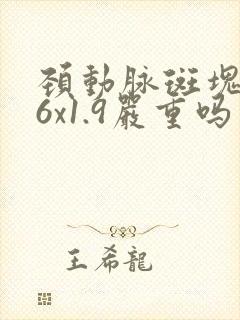 頚動脉斑塊
6x1.9嚴重吗
王希龍